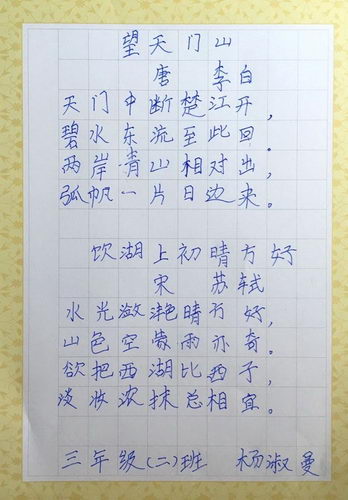 望天门山
唐 李白
天门中断楚江开，
碧水东流至此回。
两岸青山相对出，
弧帆一片日边来。
饮湖上初晴方好
宋 苏轼
水光潋滟晴方好，
山色空蒙雨亦奇。
欲把西湖比西子，
淡妆浓抹总相宜。
三年级(二)班 杨淑曼